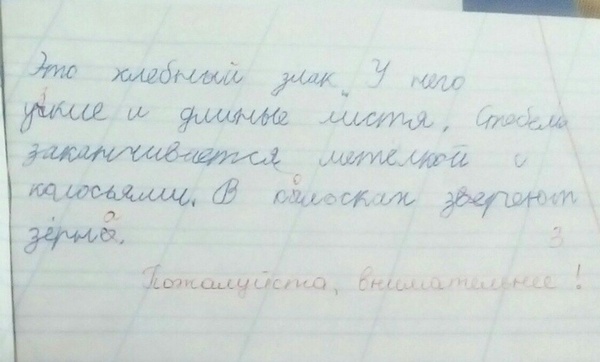 Это хлебный злак. У него
узкие и длиные листя. Стебель
заканчивается метелкой с
колосьями. В колосках
зёрна. 3
Пожалуйста, внимательнее!